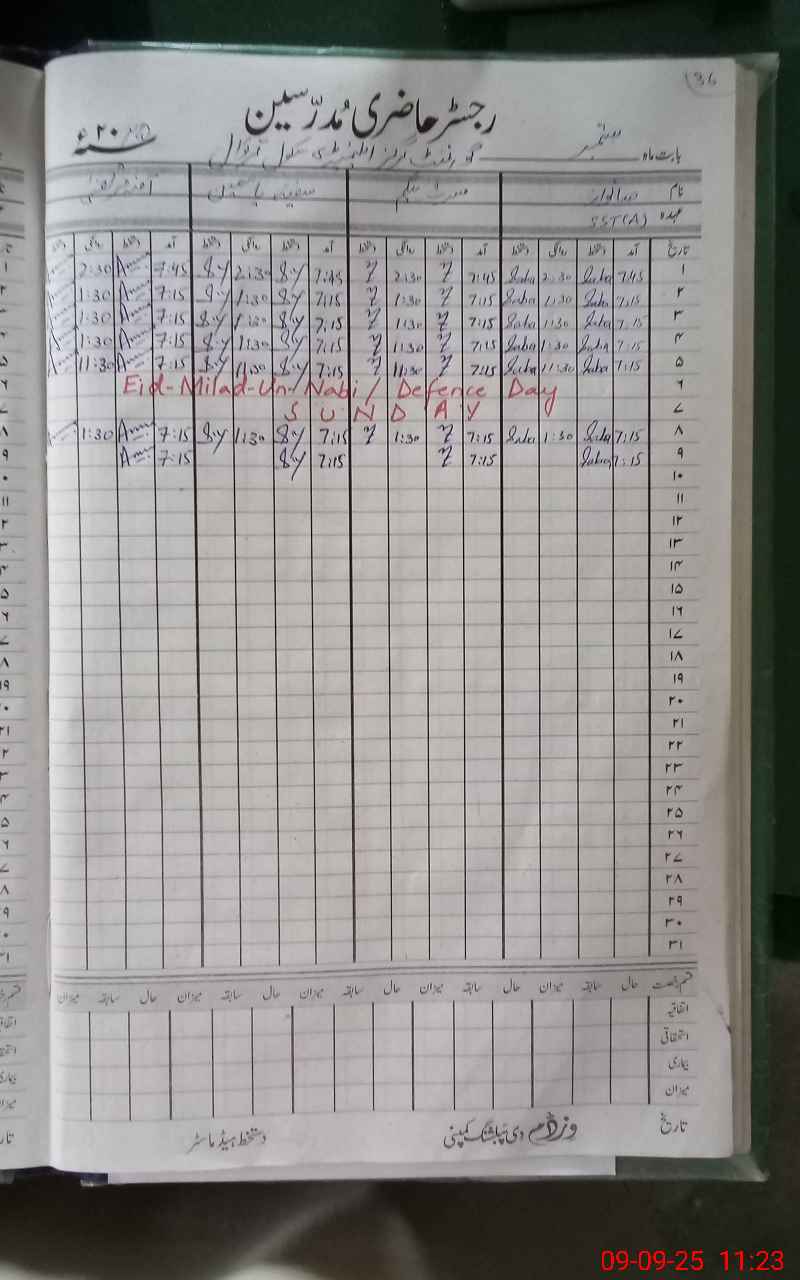 (36
رجسٹر حاضری مُدرّسین
۲۰۲۵ء
بابت ماہ ستمبر گورنمنٹ گرلز ایلیمنٹری سکول
نام
عہدہ SST(A)
تاریخ آمد دستخط روانگی دستخط آمد دستخط روانگی دستخط آمد دستخط روانگی دستخط آمد دستخط روانگی دستخط
۱ 7:45 Saba 2:30 Saba 7:45 2:30 7:45 S.Y 2:30 S.Y 7:45 2:30
۲ 7:15 Saba 1:30 Saba 7:15 1:30 7:15 S.Y 1:30 S.Y 7:15 1:30
۳ 7:15 Saba 1:30 Saba 7:15 1:30 7:15 S.Y 1:30 S.Y 7:15 1:30
۴ 7:15 Saba 1:30 Saba 7:15 1:30 7:15 S.Y 1:30 S.Y 7:15 1:30
۵ 7:15 Saba 11:30 Saba 7:15 11:30 7:15 S.Y 11:30 S.Y 7:15 11:30
۶ Eid-Milad-Un-Nabi / Defence Day
۷ SUNDAY
۸ 7:15 Saba 1:30 Saba 7:15 1:30 7:15 S.Y 1:30 S.Y 7:15 1:30
۹ 7:15 Saba 7:15 7:15 S.Y 7:15
۱۰
۱۱
۱۲
۱۳
۱۴
۱۵
۱۶
۱۷
۱۸
۱۹
۲۰
۲۱
۲۲
۲۳
۲۴
۲۵
۲۶
۲۷
۲۸
۲۹
۳۰
۳۱
قسم رخصت حال سابقہ میزان حال سابقہ میزان حال سابقہ میزان حال سابقہ میزان
اتفاقیہ
استحقاقی
بیماری
میزان
تاریخ دی پبلشنگ کمپنی دستخط ہیڈ ماسٹر
09-09-25 11:23